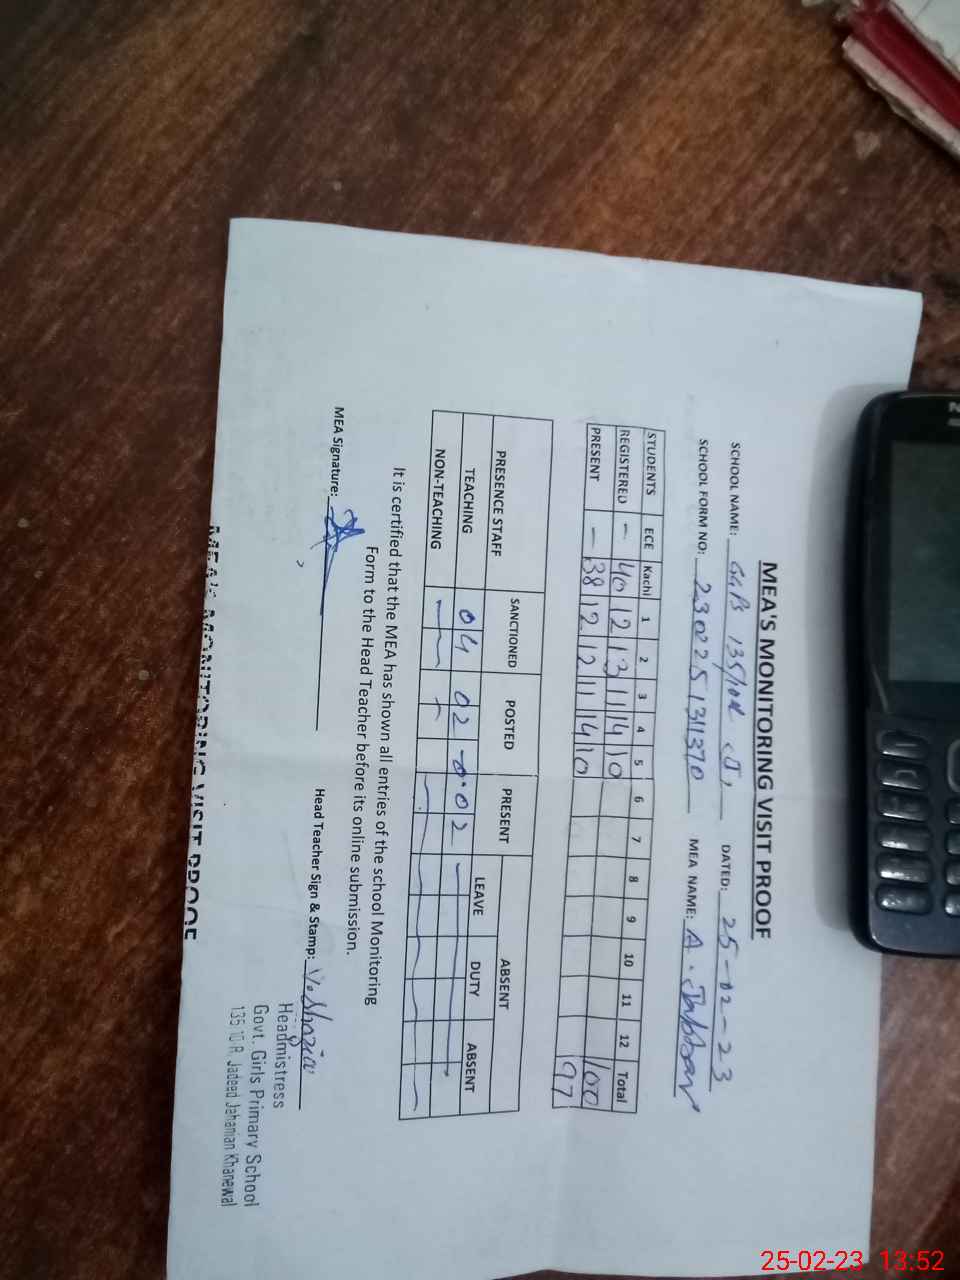 MEA'S MONITORING VISIT PROOF
SCHOOL NAME: 135/10R DATED: 25-02-23
SCHOOL FORM NO: MEA NAME: A. Jabbar
STUDENTS ECE Kachi 1 2 3 4 5 6 7 8 9 10 11 12 Total
REGISTERED - 40 12 13 11 14 10 100
PRESENT - 38 12 12 11 14 10 97
PRESENCE STAFF SANCTIONED POSTED PRESENT ABSENT
LEAVE DUTY ABSENT
TEACHING 04 02 02
NON-TEACHING
It is certified that the MEA has shown all entries of the school Monitoring
Form to the Head Teacher before its online submission.
MEA Signature: Head Teacher Sign & Stamp: Shazia
Headmistress
Govt. Girls Primary School
135 10-R Jadeed Jahanian Khanewal
MEA'S MONITORING VISIT PROOF
25-02-23 13:52